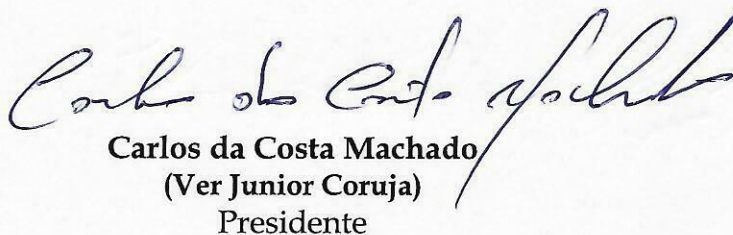 Carlos da Costa Machado
Carlos da Costa Machado
(Ver Junior Coruja)
Presidente